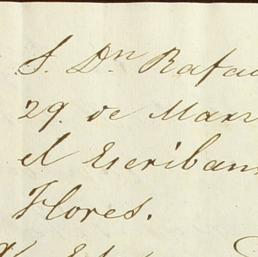 S. Dn Rafa
29. de Mar
el Escriban
Flores.